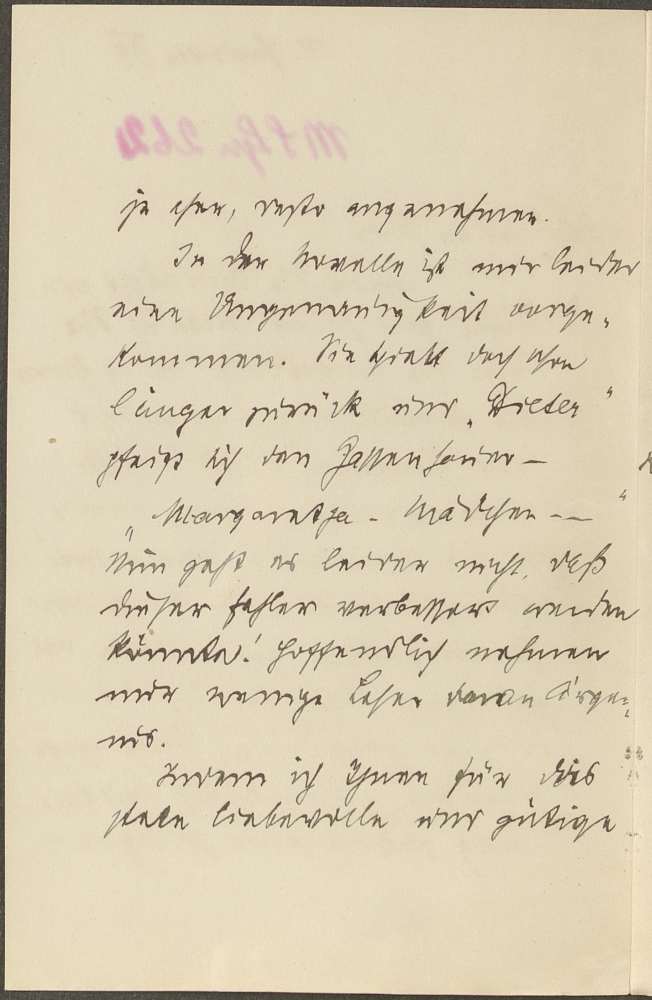 je eher, desto angenehmer.
In der Novelle ist mir leider
eine Ungenauigkeit vorge-
kommen. Sie spielt doch schon
länger zurück und „Dieter“
pfeift sich den Gassenhauer —
„Margarethe - Mädchen — —“
Nun geht es leider nicht, daß
dieser Fehler verbessert werden
könnte! Hoffendlich nehmen
nur wenige Leser daran Ärger-
nis.
Indem ich Ihnen für das
stete liebevolle und gütige